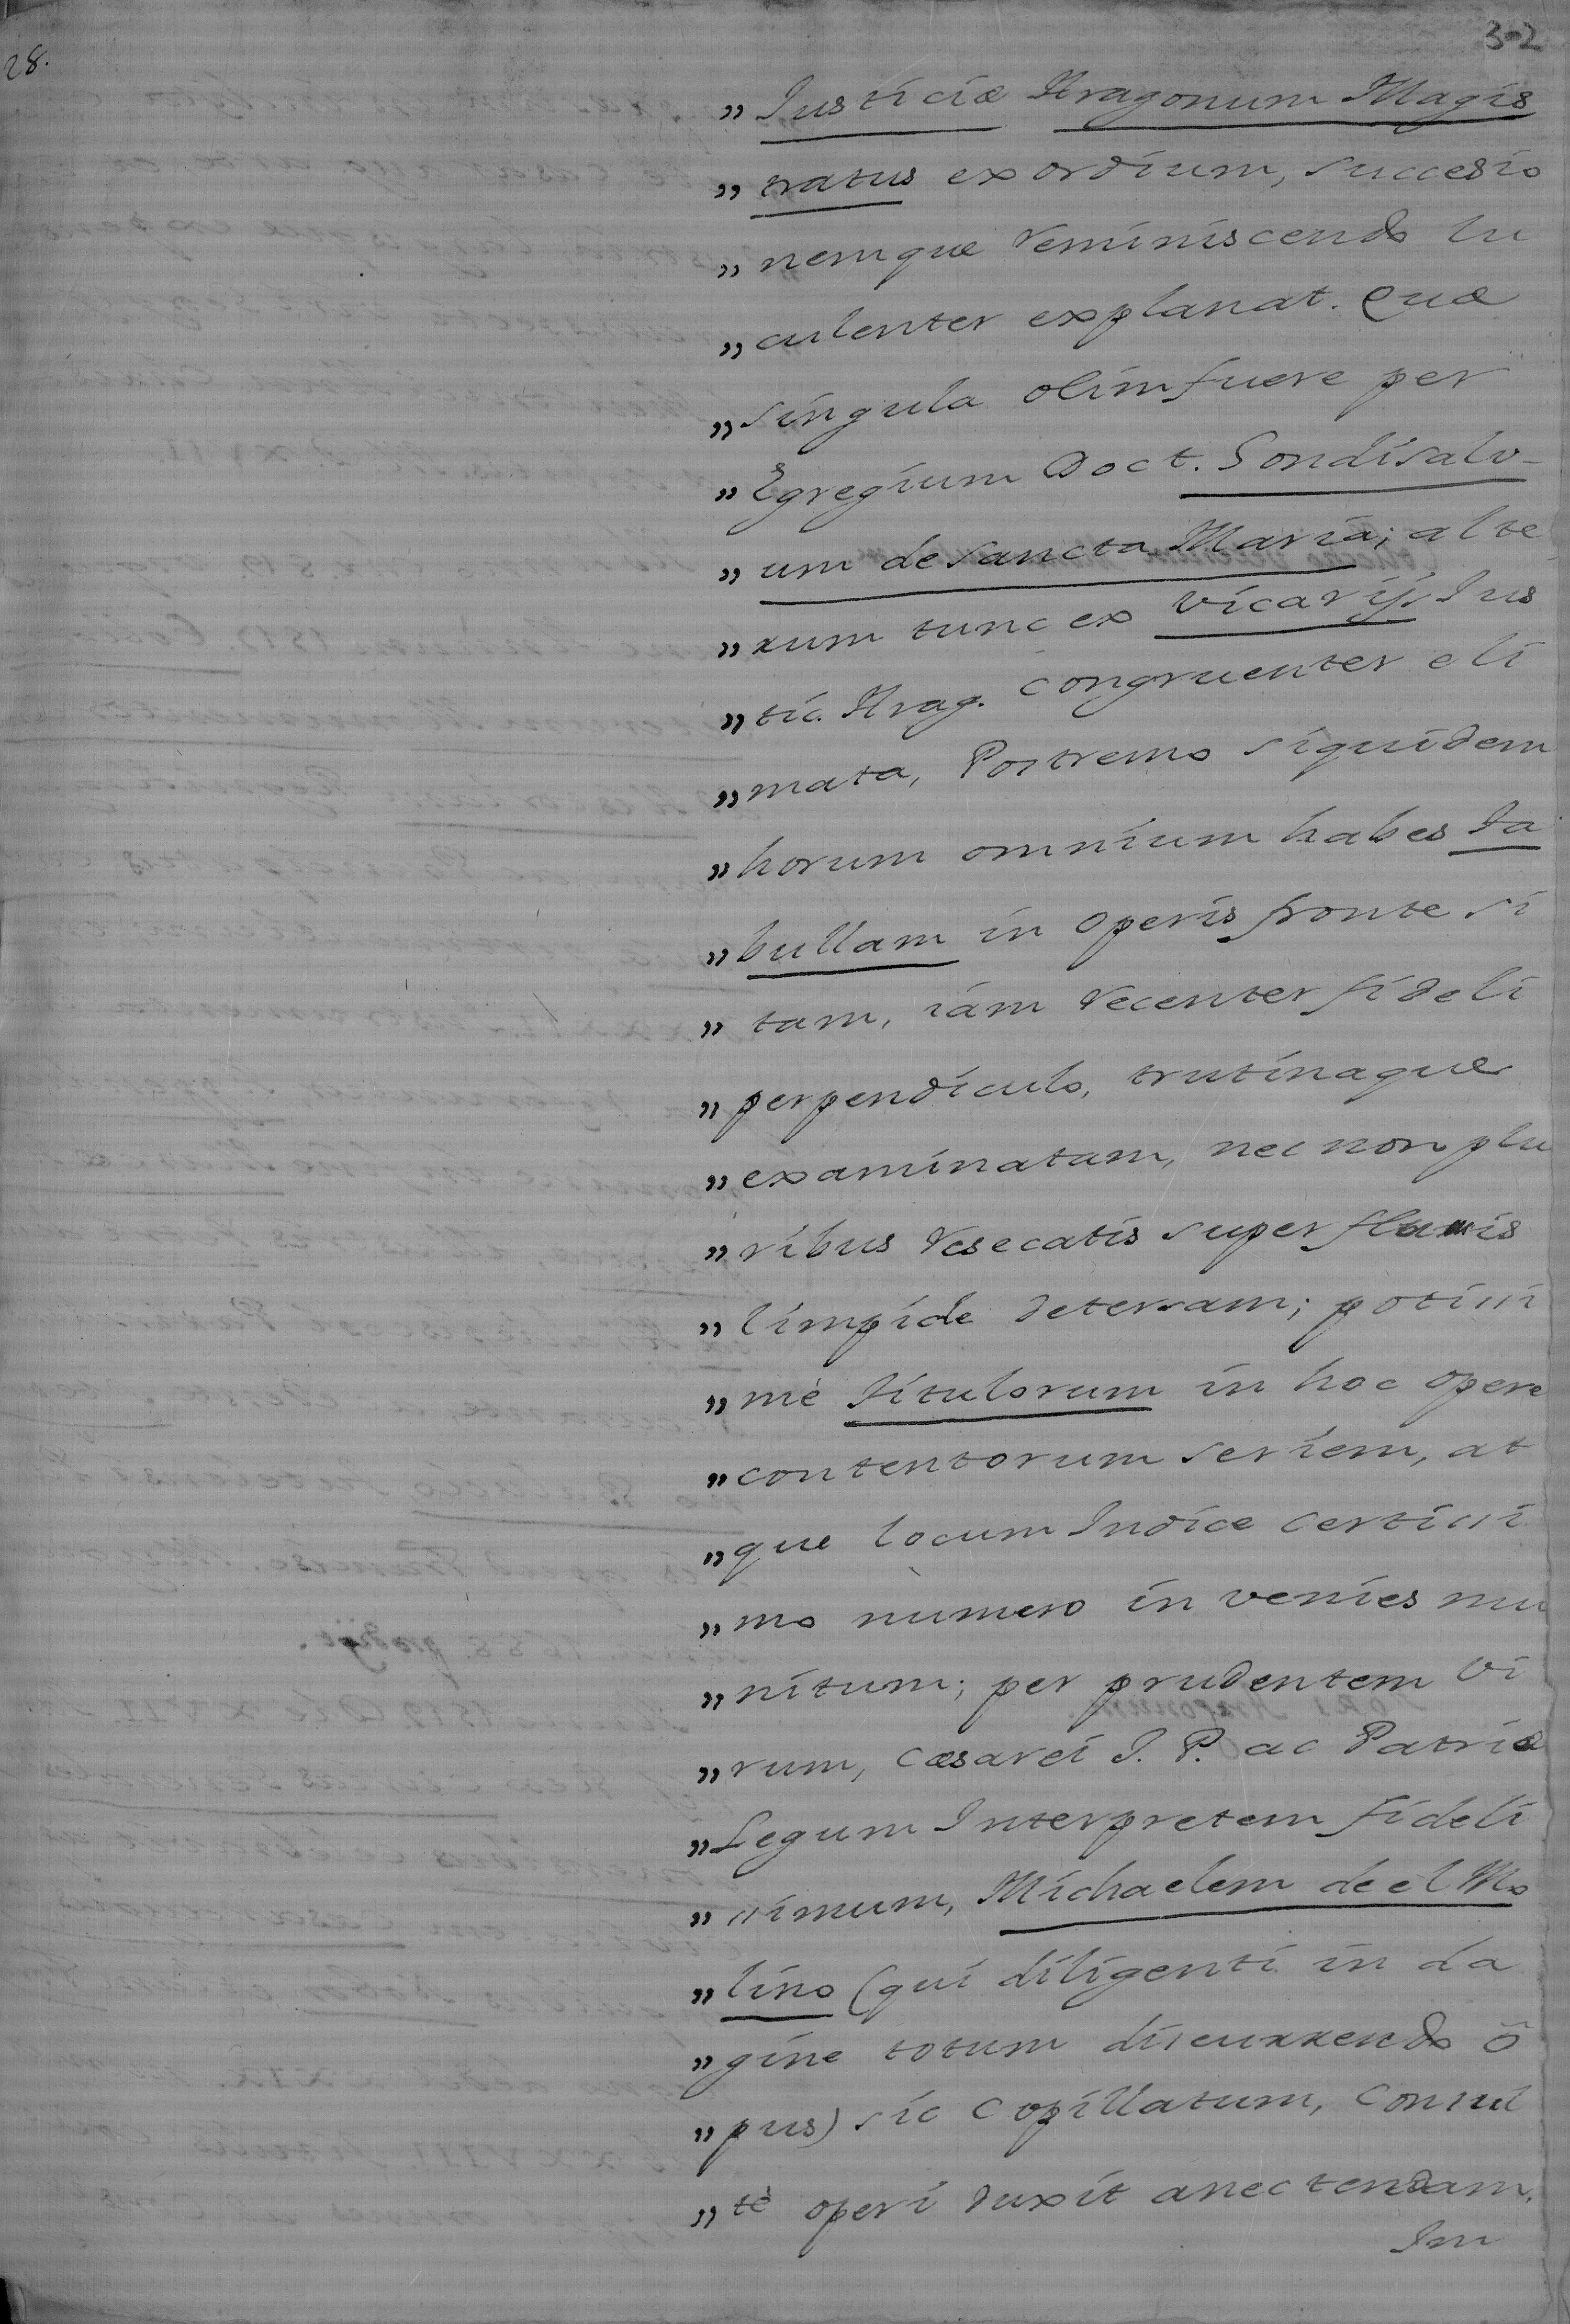 28.
3-2
„ Justiciæ Aragonum Magis
„ tratus exordium, succesio
„ nemque reminiscendo lu
„ culenter explanat. Quæ
„ singula olim fuere per
„ Egregium Doct. Gondisalv-
„ um de Sancta Maria; alte
„ rum tunc ex Vicarijs Jus
„ tic. Arag. congruenter eli
„ mata, Postremo siquidem
„ horum omnium habes Ta
„ bullam in operis fronte si
„ tam, iám recenter fideli
„ perpendiculo, trutinaque
„ examinatam, nec non plu
„ ribus resecatis superfluis
„ limpide detersam; potissi
„ mè titulorum in hoc opere
„ contentorum seriem, at
„ que locum Indice certissi
„ mo numero in venies mu
„ nitum; per prudentem Vi
„ rum, Cæsarei J. P. ac Patriæ
„ Legum Interpretem fideli
„ ssimum, Michaelem de el Mo
„ lino (qui diligenti in da
„ gine totum discurrendo ō
„ pus) sic copillatum, consul
„ tè operi duxit anectendam.
Im